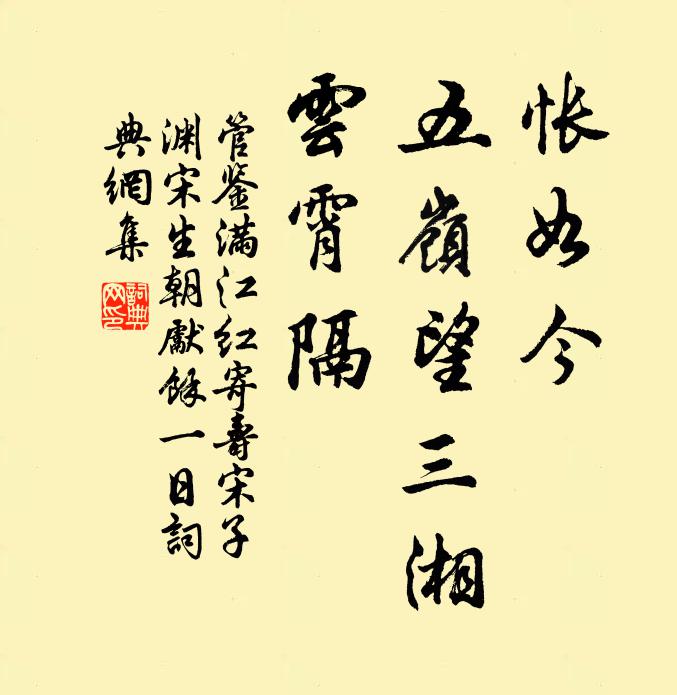 悵如今
五嶺望三湘
雲霄隔
管鉴滿江红寄壽宋子
渊宋生朝獻餘一日詞
典網集
詞典網印